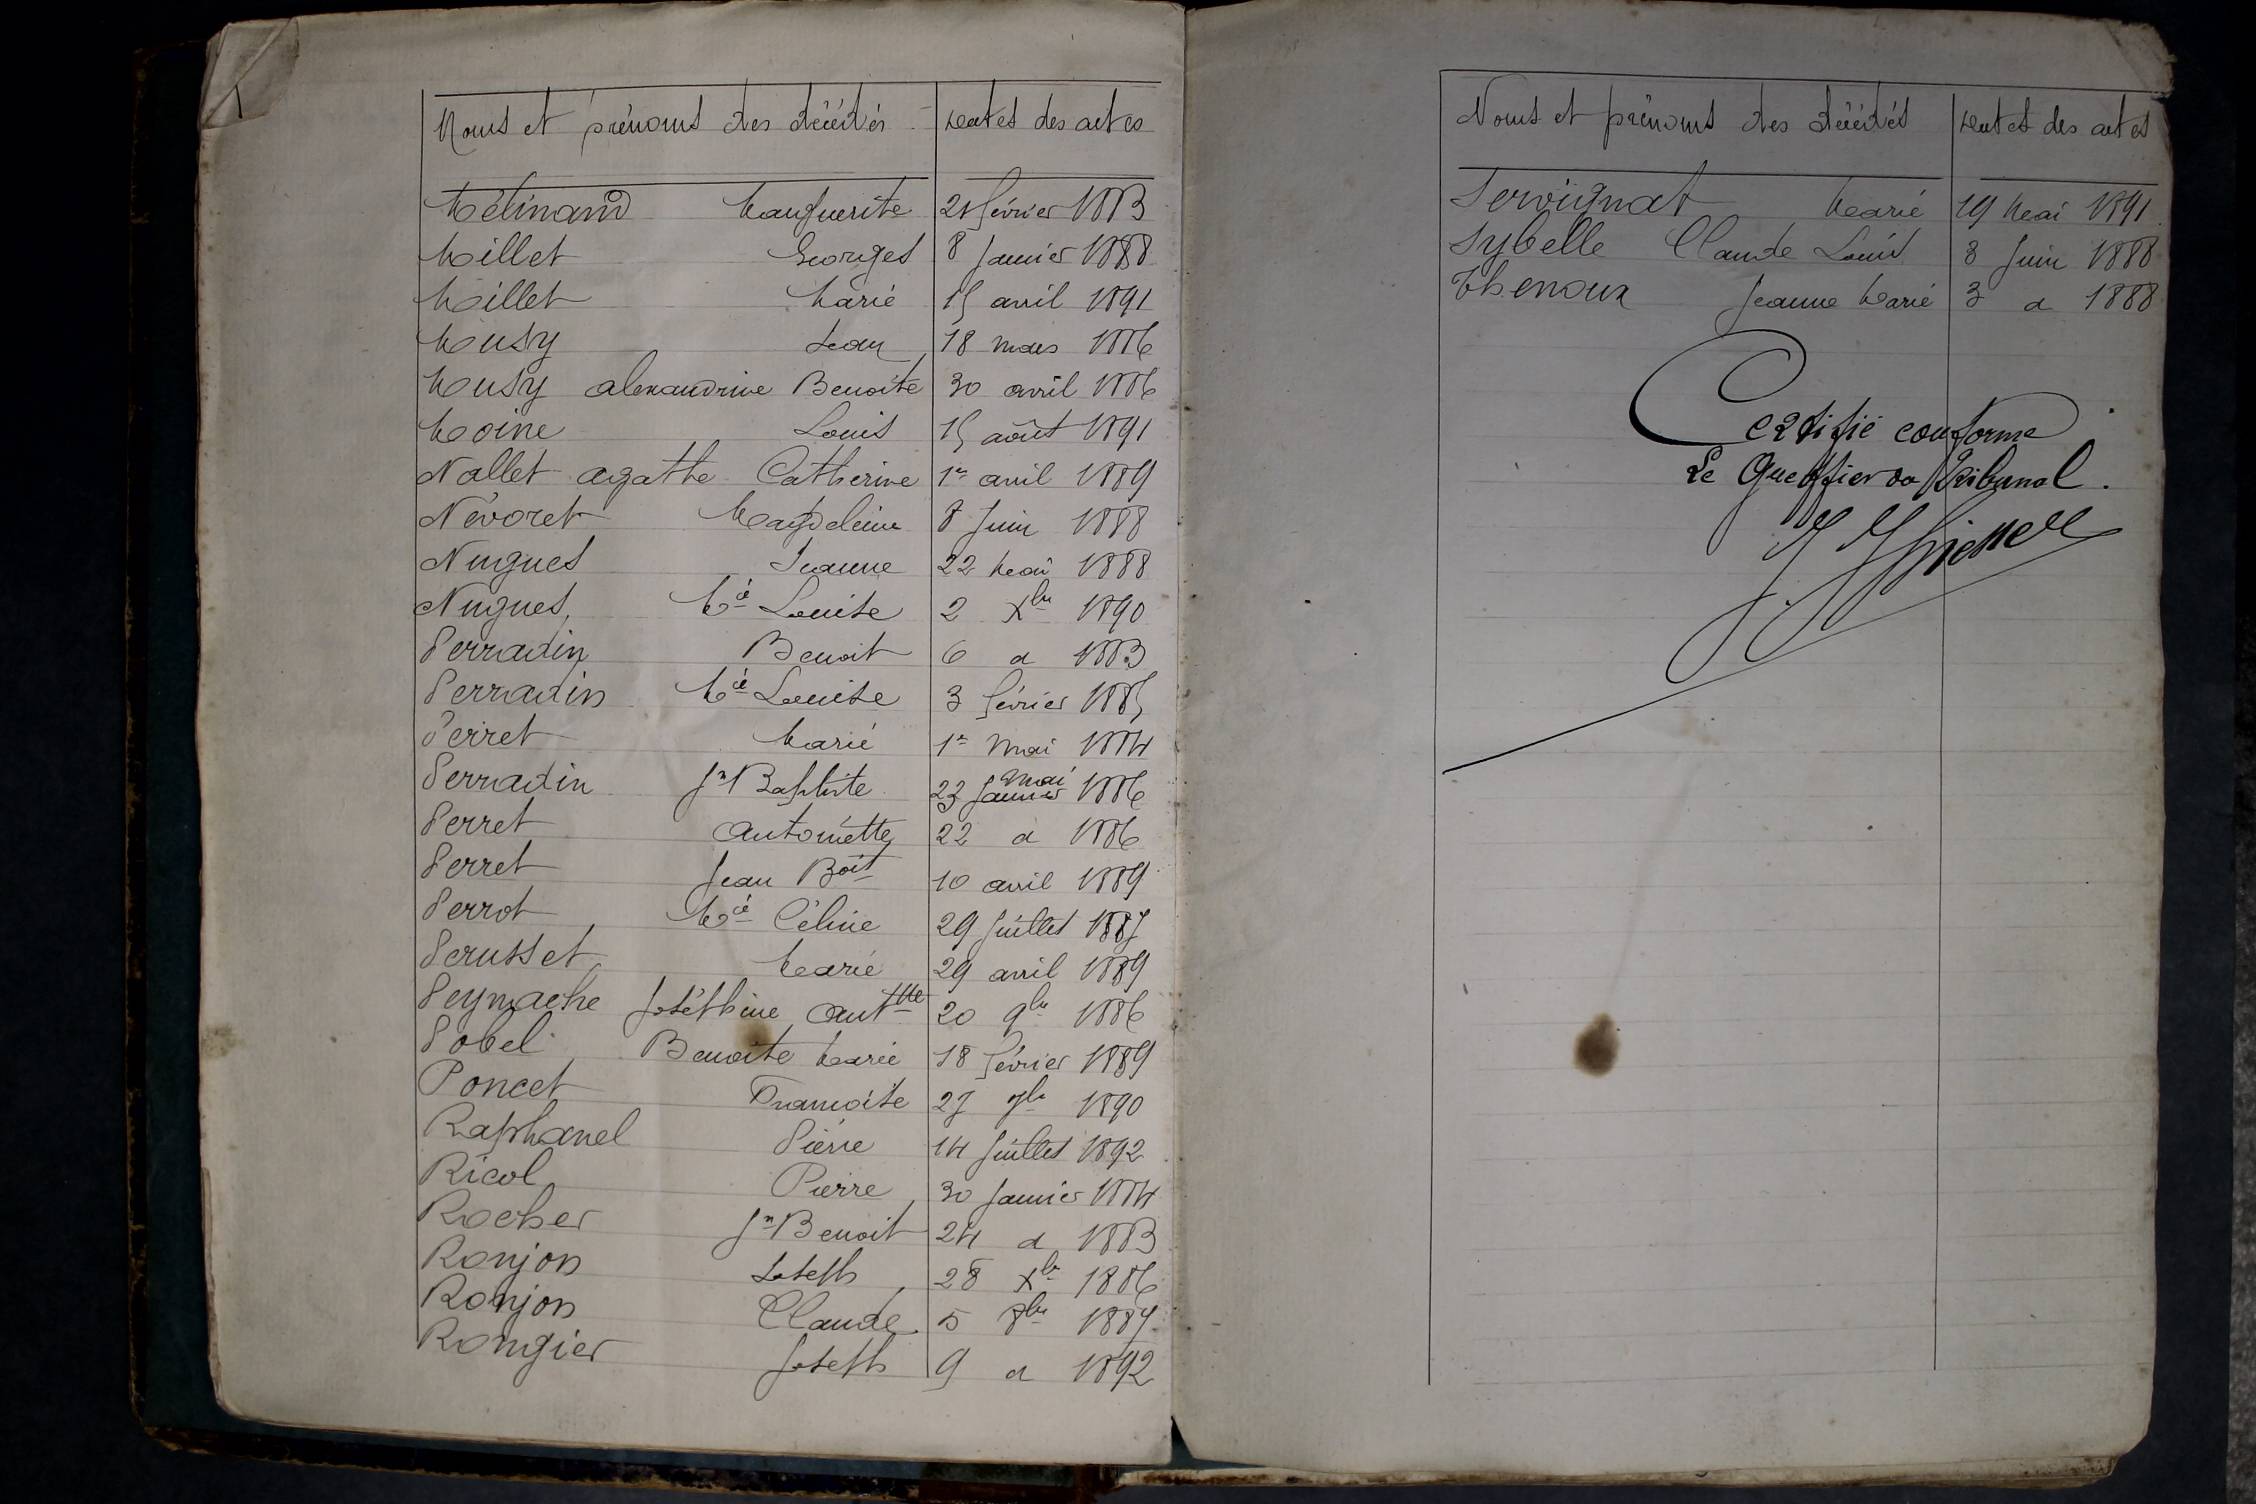 Noms et prénoms des décédés dates des actes
Mélinand Marguerite 21 février 1883
Millet Georges 8 Janvier 1888
Millet Marie 15 avril 1891
Musy Jean 18 mars 1886
Musy alexandrine Benoite 30 avril 1886
Moine Louis 15 août 1891
Nallet agathe Catherine 1er avril 1889
Névoret Magdeleine 8 Juin 1888
Nugues Jeanne 22 Mai 1888
Nugues, Mie Louise 2 Xbre 1890
Perradin Benoit 6 d 1883
Perradin Mie Louise 3 février 1885
Perret Marie 1er Mai 1884
Perradin Jn Baptiste 23 Janvier mai 1886
Perret Antoinette 22 d 1886
Perret Jean Boit 10 avril 1889
Perrot Mie Céline 29 Juillet 1887
Perusset Marie 29 avril 1889
Peymache Joséphine Anttte 20 9bre 1886
Pobel Benoite Marie 18 février 1889
Poncet Françoise 27 7bre 1890
Raphanel Pierre 14 Juillet 1892
Ricol Pierre 30 Janvier 1884
Rocher Jn Benoit 24 d 1883
Ronjon Joseph 28 Xbre 1886
Ronjon Claude 5 8bre 1889
Rongier Joseph 9 d 1892
Noms et prénoms des décédés dates des actes
Servignat Marie 19 Mai 1891
Sybelle Claude Louis 3 Juin 1888
Thenoux Jeanne Marie 3 d 1888
Certifié conforme
Le Greffier du Tribunal.